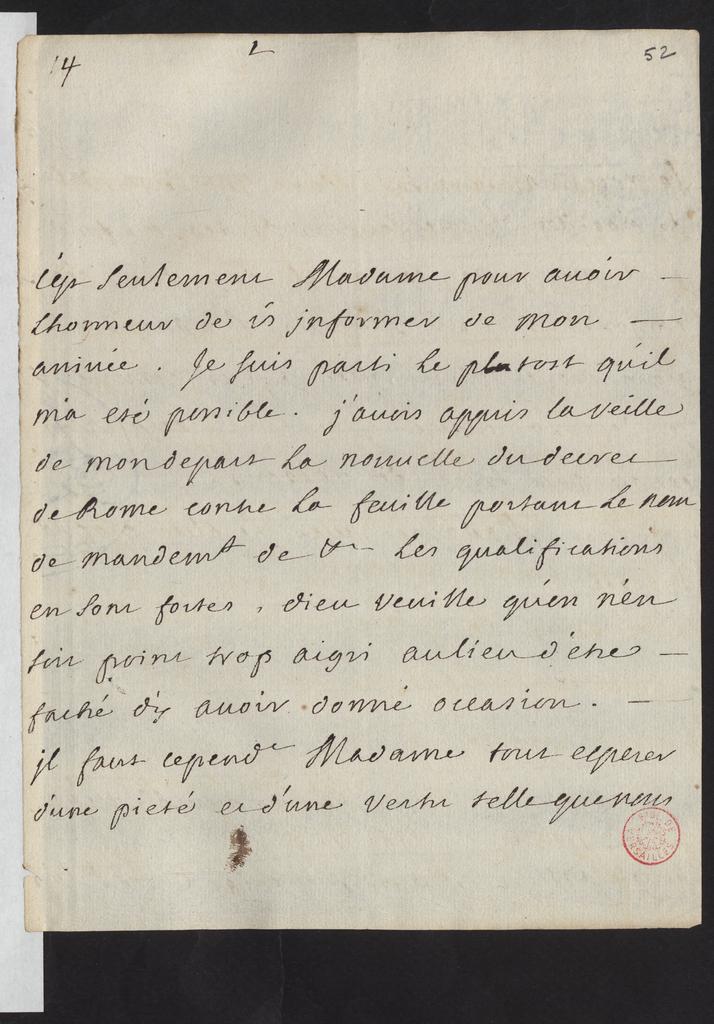 14 2 52
C'est seulement Madame pour avoir
Lhonneur de vs jnformer de mon
arrivée. Je suis parti le plutost qu'il
m'a esté possible. j'avois appris la veille
de mon depart La nouvelle du decret
de Rome contre La feuille portant Le nom
de mandemt de &c Les qualifications
en sont fortes, dieu veuille qu'on n'en
soit point trop aigri au lieu d'etre
faché d'y avoir donné occasion.
jl faut cependt Madame tout esperer
d'une pieté et d'une vertu telle que nous
BIBL. DE VERSAILLES